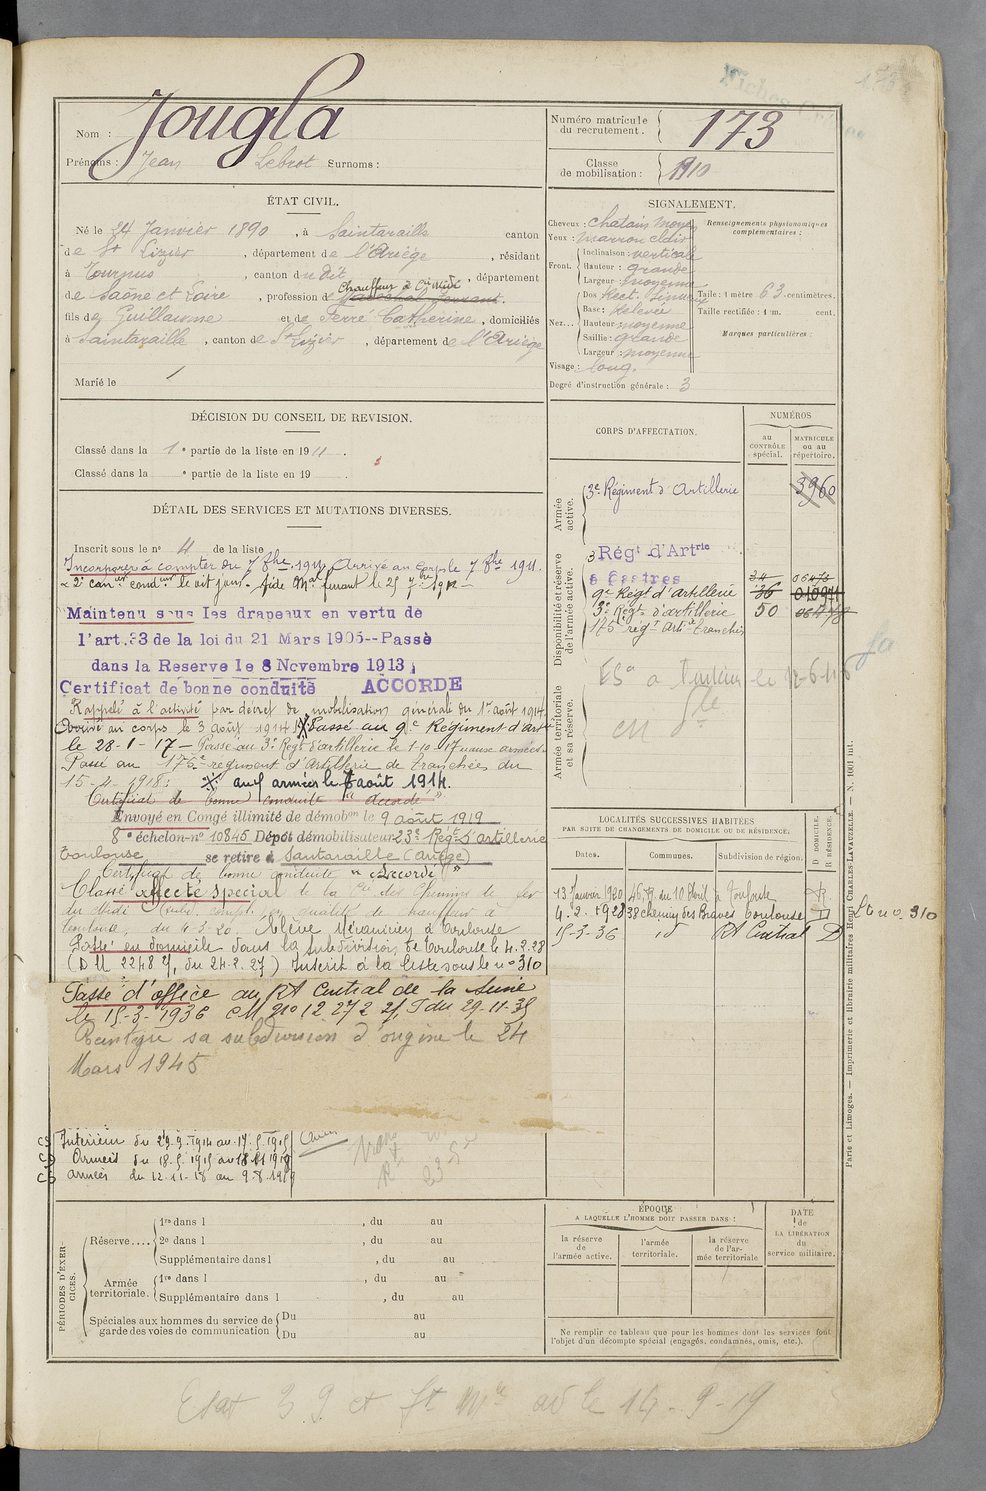 173
Nom : Jougla
Prénoms : Jean Surnoms :
Numéro matricule du recrutement. 173
Classe de mobilisation : 1910
ÉTAT CIVIL.
Né le 24 Janvier 1890, à Saintaraille canton
de St Lizier, département de l'Ariège, résidant
à Tournus, canton du dit, département
Chauffeur à Cie Midi
de Saône et Loire, profession de Maréchal ferrant.
fils de Guillaume et de Ferré Catherine, domiciliés
à Saintaraille, canton de St Lizier, département de l'Ariège
Marié le /
SIGNALEMENT.
Cheveux : chatain moyen
Yeux : marron clair
Front. Inclinaison : verticale
Hauteur : grande
Largeur : moyenne
Nez... Dos Rect. sinueux
Base : Relevée
Hauteur moyenne
Saillie : grande
Largeur : moyenne
Visage : long.
Degré d'instruction générale : 3
Renseignements physionomiques complémentaires :
Taille : 1 mètre 63 centimètres.
Taille rectifiée : 1 m. cent.
Marques particulières :
DÉCISION DU CONSEIL DE REVISION.
Classé dans la 1e partie de la liste en 1911.
Classé dans la e partie de la liste en 19 .
DÉTAIL DES SERVICES ET MUTATIONS DIVERSES.
Inscrit sous le no 4 de la liste
Incorporé à compter du 7 8bre 1911, Arrivé au corps le 7 8bre 1911.
2e canr condr le dit jour. Aide Mal ferrant le 25 7bre 1912
Maintenu sous les drapeaux en vertu de
l'art. 33 de la loi du 21 Mars 1905--Passé
dans la Reserve le 8 Novembre 1913
Certificat de bonne conduite ACCORDE
Rappelé à l'activité par décret de mobilisation générale du 1er août 1914.
Arrivé au corps le 3 août 1914 X Passé au 9e Régiment d'Artie
le 28-1-17 - Passé au 3e Régt d'artillerie le 1-10-17 aux armées
Passé au 175e régiment d'Artillerie de tranchées du
15-4-1918. X aux armées le août 1914.
Certificat de bonne conduite "accordé"
Envoyé en Congé illimité de démobon le 9 août 1919
8e échelon-no 10845 Dépôt démobilisateur 23e Régt d'artillerie
Toulouse se retire à Santaraille (Ariège)
Certificat de bonne conduite "Accordé"
Classé affecté spécial de la Cie des Chemins de fer
du Midi en qualité de chauffeur à
Toulouse, du 4-3-20 Elève Mécanicien à Toulouse
Passé en domicile dans la subdivision de Toulouse le 4.2.28
(DM 2248 du 24.2.27) Inscrit à la liste sous le no 310
Passé d'office au RT Central de la Seine
le 15-3-1936 DM No 12 272 2/ du 29-11-35
Réintègre sa subdivision d'origine le 24
Mars 1945
CS Intérieur du 29.9.1914 au 17.5.1915
CS Armées du 18.5.1915 au
CS armées du 12-11-18 au 9-8-1919
CORPS D'AFFECTATION.
NUMÉROS
au CONTRÔLE spécial.
MATRICULE ou au répertoire.
Armée active.
3e Régiment d'Artillerie 3960
Disponibilité et réserve de l'armée active.
3 Régt d'Artrie
à Castres
9e Régt d'artillerie 36
3e Régt d'artillerie 50
175e régt Artie tranchées
Armée territoriale et sa réserve.
LOCALITÉS SUCCESSIVES HABITÉES
PAR SUITE DE CHANGEMENTS DE DOMICILE OU DE RÉSIDENCE.
Dates. Communes. Subdivision de région. D. DOMICILE. R. RÉSIDENCE.
13 Janvier 1920 46, R. du 10 Avril à Toulouse R.
4.2.1928 38 chemin des Braves Toulouse D L no 310
15-3-36 id RT Central D
Paris et Limoges. — Imprimerie et librairie militaires Henri CHARLES-LAVAUZELLE. — N. 1001 int.
PÉRIODES D'EXERCICES.
Réserve.... 1re dans l , du au
2e dans l , du au
Supplémentaire dans l , du au
Armée territoriale. 1re dans l , du au
Supplémentaire dans l , du au
Spéciales aux hommes du service de garde des voies de communication Du au
Du au
ÉPOQUE
A LAQUELLE L'HOMME DOIT PASSER DANS :
la réserve de l'armée active.
l'armée territoriale.
la réserve de l'armée territoriale
DATE de LA LIBÉRATION du service militaire.
Ne remplir ce tableau que pour les hommes dont les services font
l'objet d'un décompte spécial (engagés, condamnés, omis, etc.).